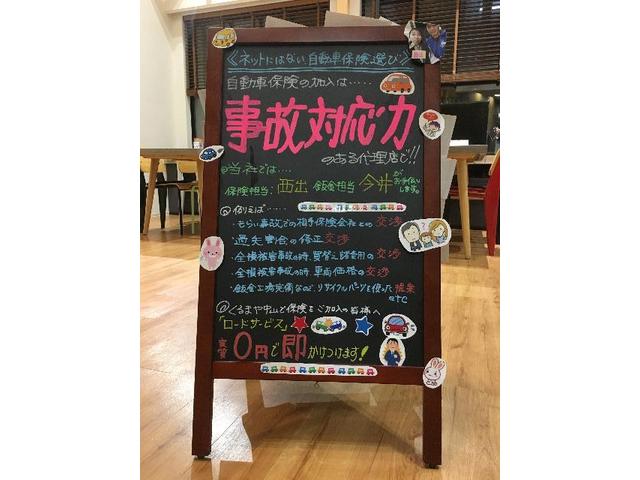 《ネットにはない自動車保険選び》
自動車保険の加入は‥‥‥
事故対応力
のある代理店で!!
◎当社では‥‥
保険担当:西出 鈑金担当 今井がお手伝いします。
◎例えば‥‥‥
・もらい事故での相手保険会社との交渉
・過失割合の修正交渉
・全損被害事故の時、買替え諸費用の交渉
・全損被害事故の時、車両価格の交渉
・鈑金工場完備なので、リサイクルパーツを使った提案
etc
◎くるまや中山で保険をご加入の皆様へ
「ロードサービス」
実質0円で即かけつけます!